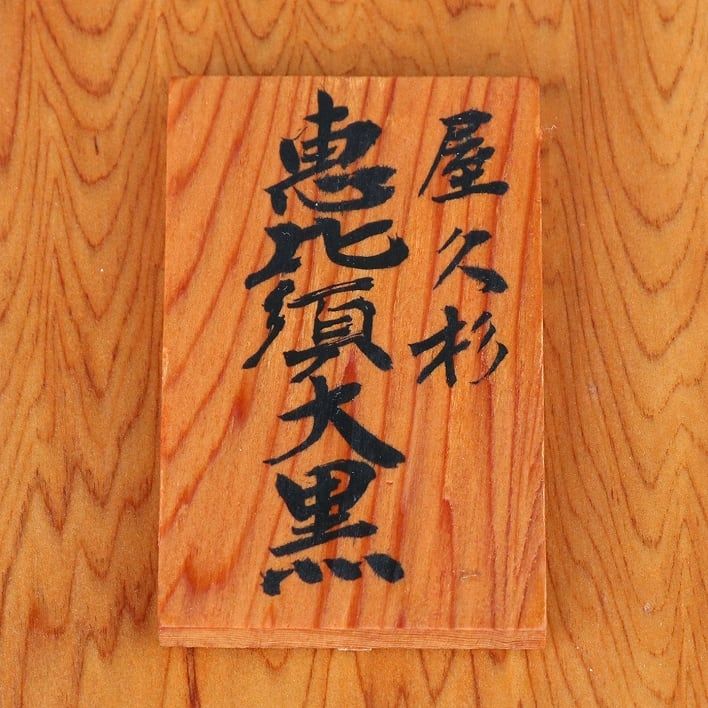 屋久杉
恵比須大黒